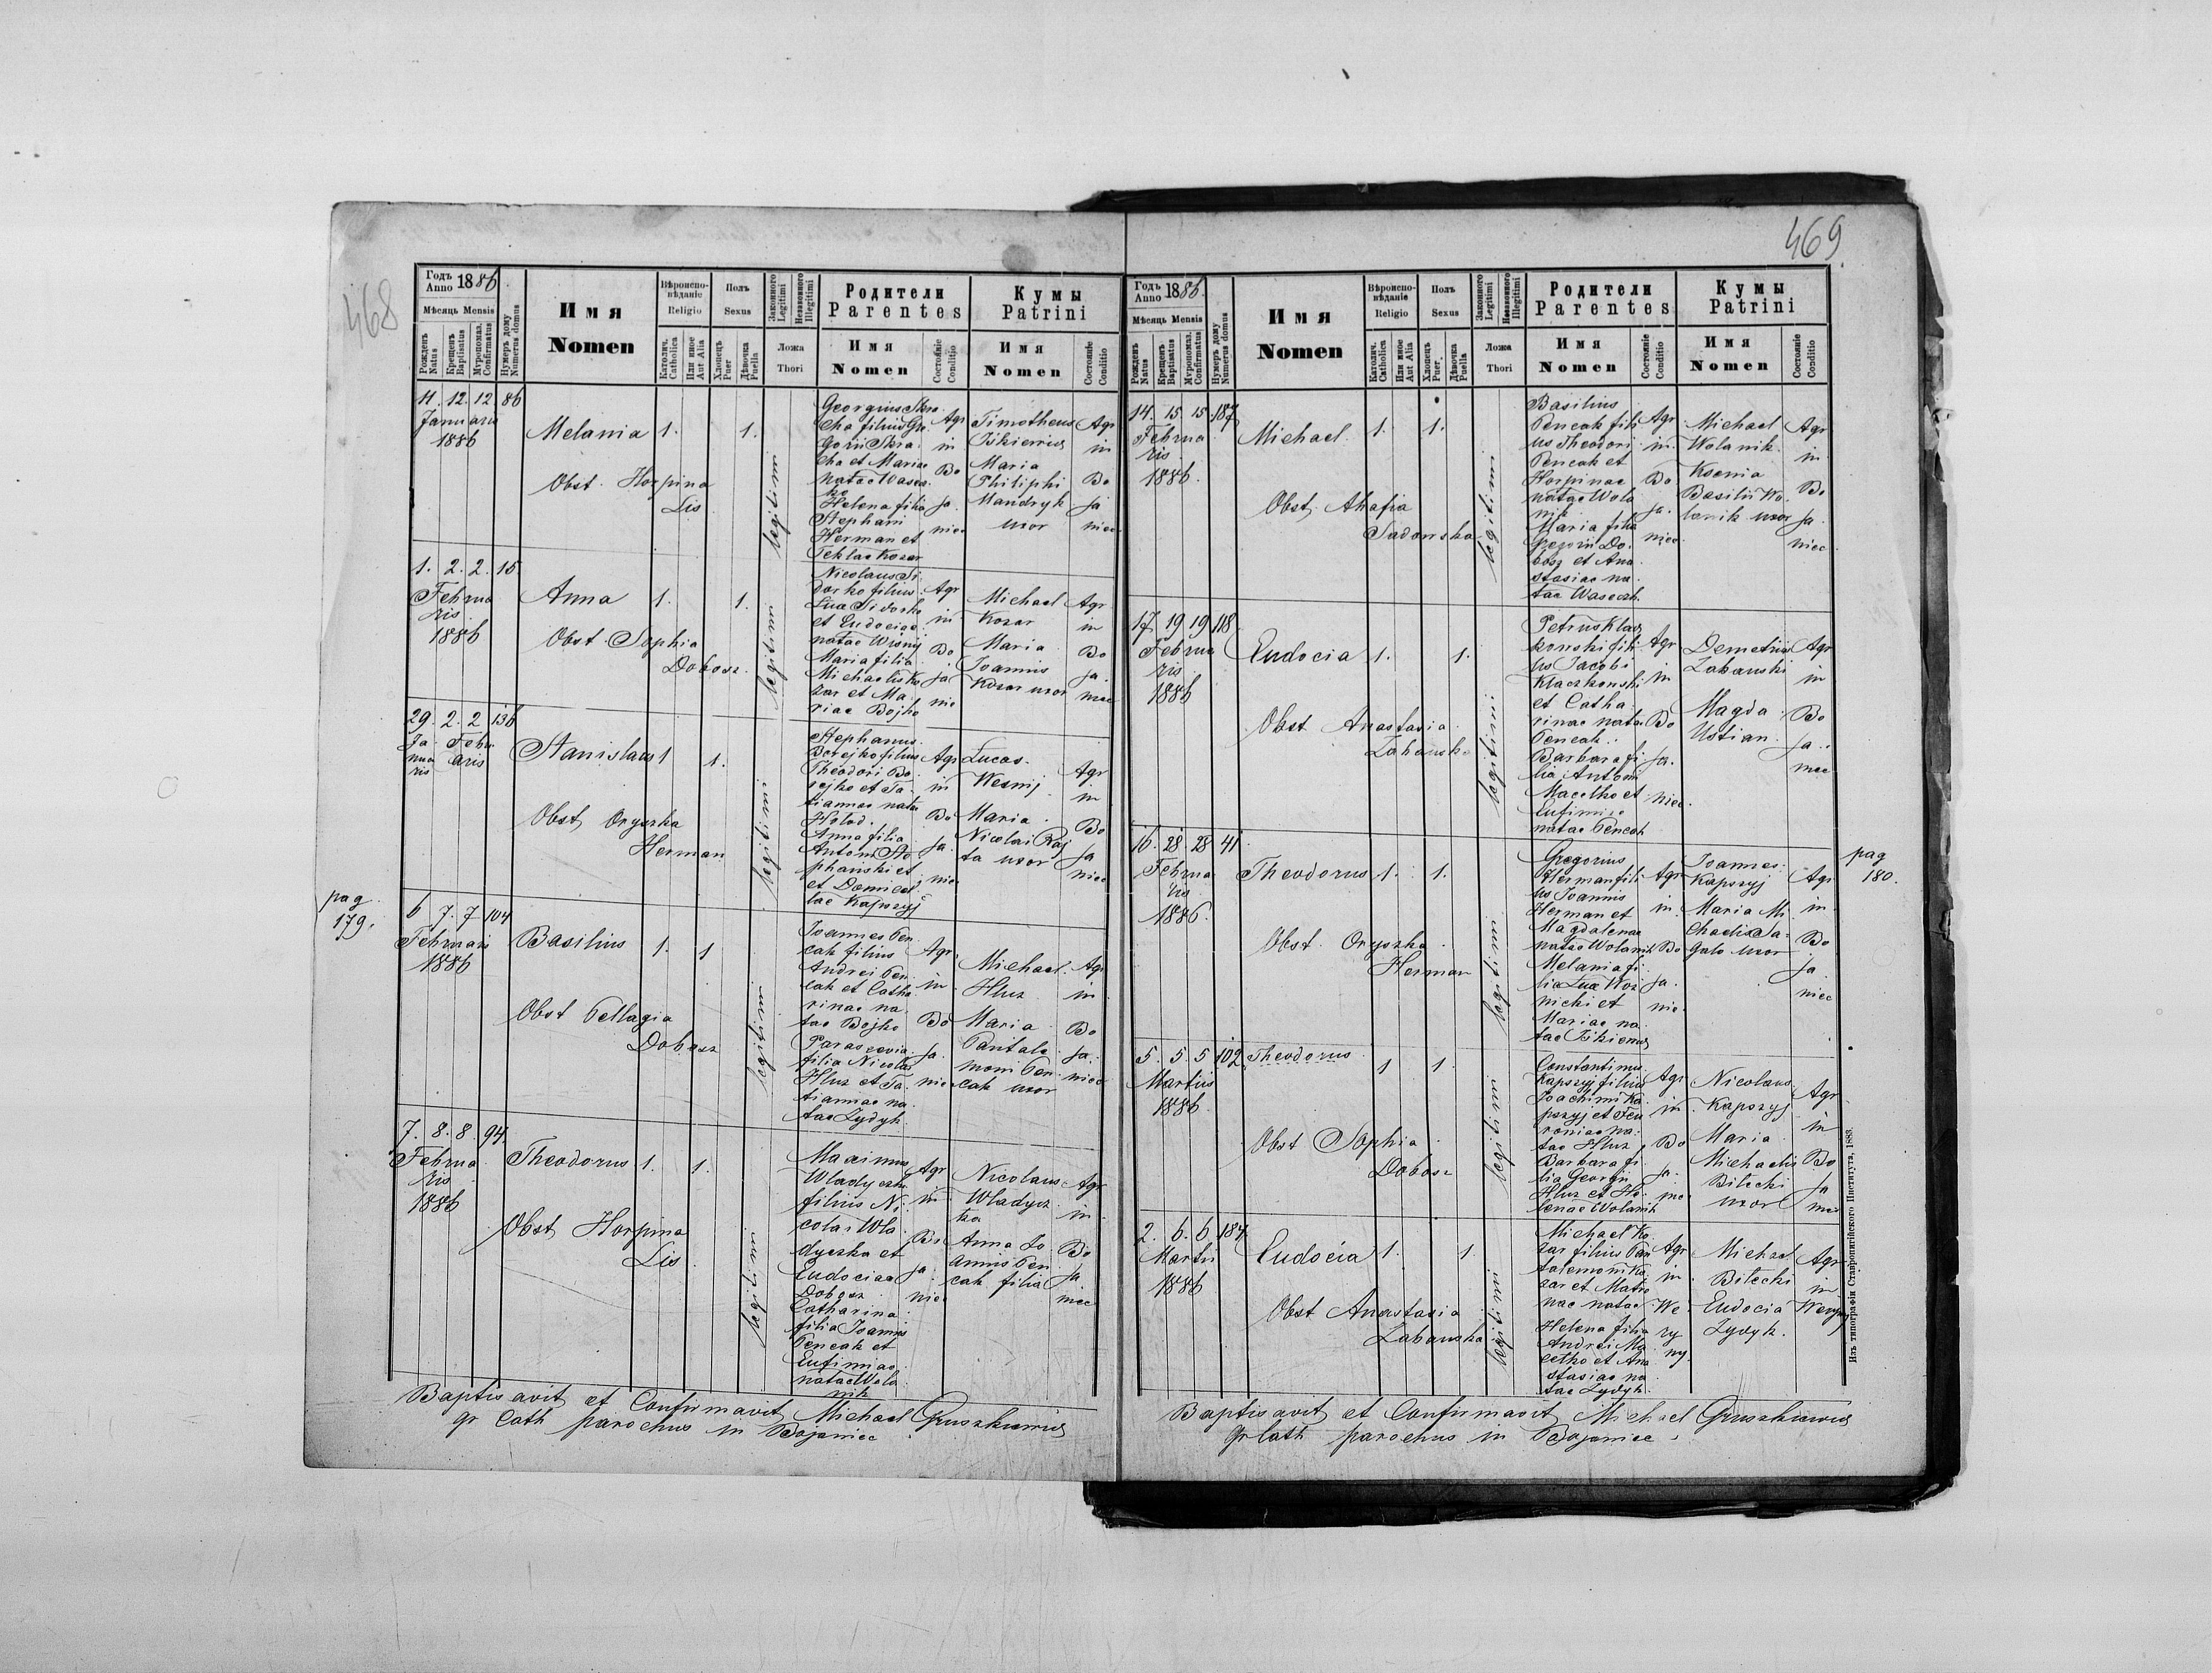 468
Годъ Anno 1886
Мѣсяць Mensis
Рожденъ Natus
Крещенъ Baptisatus
Муропомаз. Confirmatus
Нумеръ дому Numerus domus
Имя
Nomen
Вѣроиспо-
вѣданіе
Religio
Католич. Catholica
Или иное Aut Alia
Полъ
Sexus
Хлопецъ Puer
Дѣвочка Puella
Законного Legitimi
Незаконного Illegitimi
Ложа
Thori
Родители
Parentes
Имя
Nomen
Состояніе Conditio
Кумы
Patrini
Имя
Nomen
Состояніе Conditio
11. 12. 12. 86
Januarii
1886
Melania 1. 1.
Obst. Horpina
Lis
legitimi
Georgius Skra
cha filius Gre
gorii Skra
cha et Mariae
natae
Helena filia
Stephani
Herman et
Teklae Kozar
Agr
in
Bo
ja
niec
Timotheus
Maria
Philiphi
Mandryk
uxor
Agr
in
Bo
ja
niec
1. 2. 2. 15
Februa
ris
1886
Anna 1. 1.
Obst. Sophia
Dobosz
legitimi
Nicolaus Si
dorko filius
Luae Sidorko
et Eudociae
natae Wisnij
Maria filia
Michaelis Ko
zar et Ma
riae Bojko
Agr
in
Bo
ja
nie
Michael
Kozar
Maria
Joannis
Kozar uxor
Agr
in
Bo
ja.
niec
29. 2. 2 136
Ja Febru
nua aris
ris
Stanislaus 1 1.
Obst. Oryszka
Herman
legitimi
Stephanus
Borejko filius
Theodori Bo
rejko et Ta
tiannae natae
Holod.
Anna filia
Antoni Ste
phanski et
et Domicel
lae Kapszyj
Agr
in
Bo
ja.
niec
Lucas
Wesnij
Maria
Nicolai Raj
ta uxor
Agr
in
Bo
ja
niec
pag
179.
6 7. 7 104
Februari
1886
Basilius 1. 1
Obst Pellagia
Dobosz
legitimi
Joannes Pen
cak filius
Andrei Pen
cak et Catha
rinae na
tae Bojko
Parascevia
filia Nicolai
Hluz et Ta
tiannae na
tae Zydyk
Agr.
in
Bo
ja.
nie
Michael
Hluz
Maria
Pantale
moni Pen
cak uxor
Agr
in
Bo
ja.
niec
7. 8. 8. 94.
Februa
ris
1886
Theodorus 1. 1.
Obst Horpina
Lis
legitimi
Maximus
Wladyczka
filius Ni
colai Wla
dyczka et
Eudociae
Dobosz
Catharina
filia Joannis
Pencak et
Eufimiae
natae Wola
nik
Agr
in
Bo
ja
niec
Nicolaus
Wladycz
ka
Anna Jo
annis Pen
cak filia
Agr
in
Bo
ja
niec
Baptisavit et Confirmavit Michael Gruszkiewicz
gr Cath parochus in Bojaniec.
469
Годъ Anno 1886.
Мѣсяць Mensis
Рожденъ Natus
Крещенъ Baptisatus
Муропомаз. Confirmatus
Нумеръ дому Numerus domus
Имя
Nomen
Вѣроиспо-
вѣданіе
Religio
Католич. Catholica
Или иное Aut Alia
Полъ
Sexus
Хлопецъ Puer
Дѣвочка Puella
Законного Legitimi
Незаконного Illegitimi
Ложа
Thori
Родители
Parentes
Имя
Nomen
Состояніе Conditio
Кумы
Patrini
Имя
Nomen
Состояніе Conditio
14. 15 15 187
Februa
ris
1886.
Michael 1. 1.
Obst. Ahafia
Sadowska
legitimi
Basilius
Pencak fili
us Theodori
Pencak et
Horpinae
natae Wola
nik
Maria filia
Gregorii Do
bosz et Ana
stasiae na
tae Waseczk.
Agr
in
Bo
ja.
niec
Michael
Wolanik
Ksenia
Basilii Wo
lanik uxor
Agr
in
Bo
ja
niec
17 19 19 118
Februa
ris
1886
Eudocia 1. 1.
Obst Anastasia
Zabauska
legitimi
Petrus Klacz
konski fili
us Jacobi
Klaczkonski
et Catha
rinae natae
Pencak.
Barbara fi
lia Antoni
Macelko et
Eufimiae
natae Pencak
Agr
in
Bo
ja.
niec.
Demetrius
Zabauski
Magda
Ustian
Agr
in
Bo
ja.
niec
16. 28. 28 41
Februa
ris
1886.
Theodorus 1. 1.
Obst. Oryszka
Herman
legitimi
Gregorius
Herman fili
us Joannis
Herman et
Magdalenae
natae Wolanik
Melania fi
lia Luae Woz
nicki et
Mariae na
tae
Agr
in
Bo
ja.
nie
Joannes
Kapszyj
Maria Mi
chaelis Ja
galo uxor
Agr
in
Bo
ja
niec
pag
180.
5. 5. 5 102
Martius
1886.
Theodorus 1 1
Obst Sophia
Dobosz
legitimi
Constantinus
Kapszyj filius
Joachimi Ka
pszyj et Feu
roniae na
tae Hluz
Barbara fi
lia Georgii
Hluz et He
lenae Wolanik
Agr
in
Bo
ja
nie
Nicolaus
Kapszyj
Maria
Michaelis
Bilecki
uxor
Agr
in
Bo
ja
niec
2. 6. 6 184
Martii
1886
Eudocia 1. 1.
Obst Anastasia
Zabauska
legitimi
Michael Ko
zar filius Pan
talemoni Ko
zar et Matro
nae natae
Helena filia
Andrei Ma
celko et Ana
stasiae na
tae Zydyk
Agr
in
We
ry
ny.
Michael
Bilecki
Eudocia
Zydyk.
Agr
in
Weryny
Baptisavit et Confirmavit Michael Gruszkiewicz
gr Cath parochus in Bojaniec.
Изъ типографіи Ставропигійского Института, 1883.